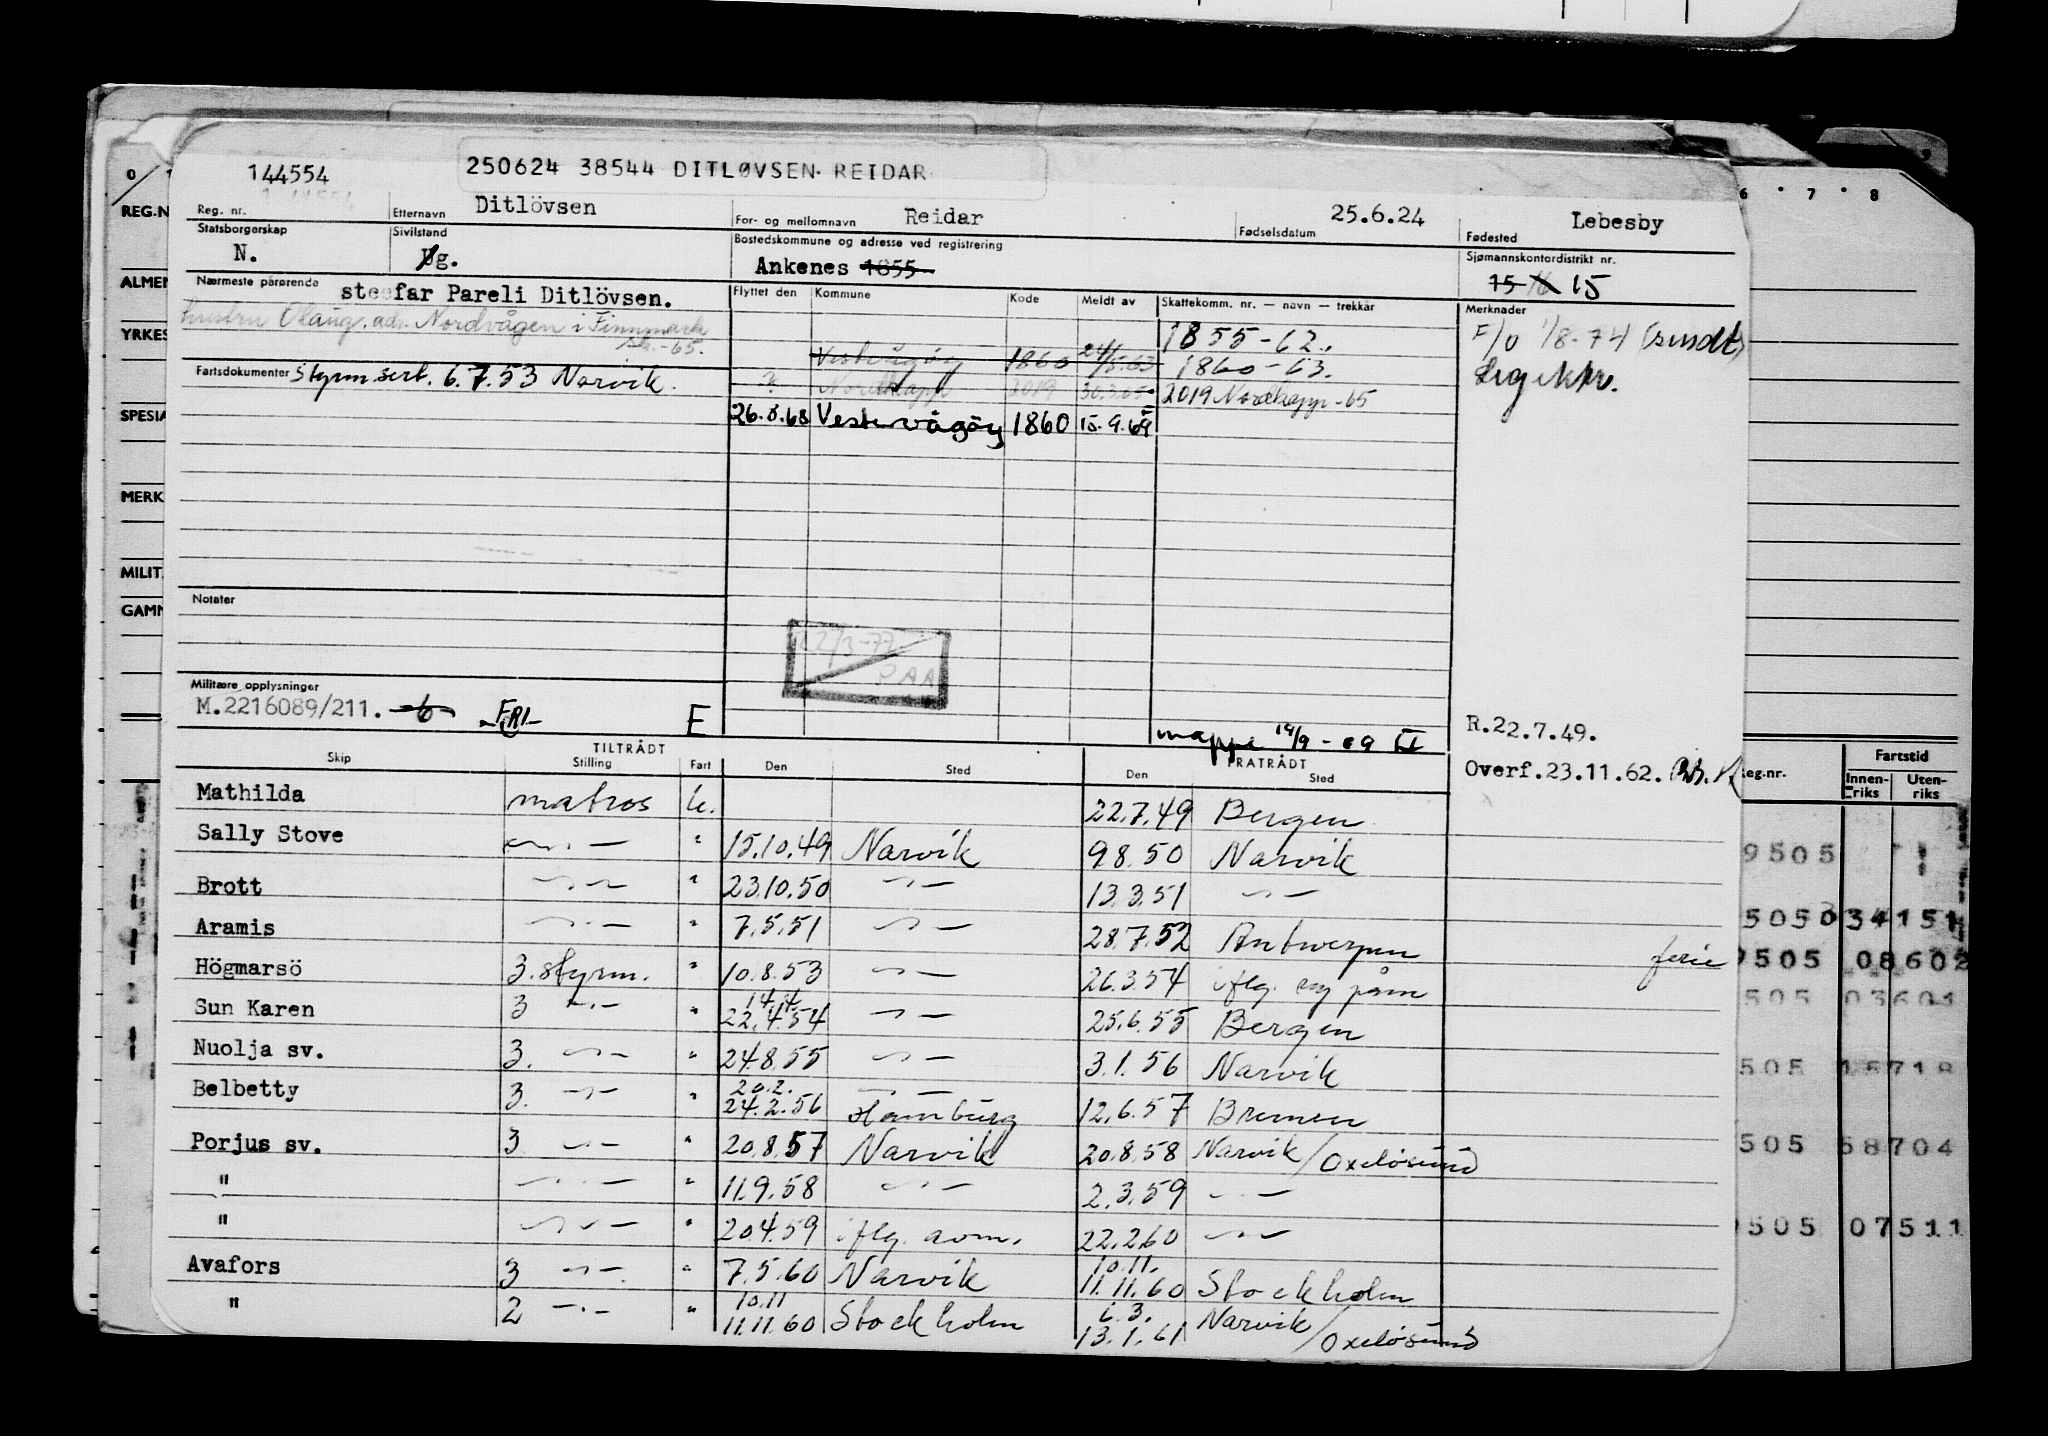 144554 250624 38544 DITLØVSEN REIDAR
Reg. nr. Etternavn Ditlövsen For- og mellomnavn Reidar Fødselsdatum 25.6.24 Fødested Lebesby
Statsborgerskap N. Sivilstand g. Bostedskommune og adresse ved registrering Ankenes 1855 Sjømannskontordistrikt nr. 15 16 15
Nærmeste pårørende steefar Pareli Ditlövsen. Flyttet den Kommune Kode Meldt av Skattekomm. nr. — navn — trekkår Merknader
hustru Olaug, adr. Nordvågen i Finnmark 1855-62. F/o 1/8-74 (sendt)
-65. Vestvågöy 1860 24/5.63 1860-63.
Fartsdokumenter Styrm.sert. 6.7.53 Narvik. ? Nordkapp 2019 2019 Nordkapp -65
26.8.68 Vestvågöy 1860 15.9.69
Notater
22/3-77
PAA
Militære opplysninger
M.2216089/211. -6- FRI E
mappe 19/9-69 II
R.22.7.49.
Overf.23.11.62.
Skip TILTRÅDT Stilling Fart Den Sted FRATRÅDT Den Sted
Mathilda matros u. 22.7.49 Bergen
Sally Stove —"— " 15.10.49 Narvik 9.8.50 Narvik
Brott —"— " 23.10.50 —"— 13.3.51 —"—
Aramis —"— " 7.5.51 —"— 28.7.52 Antwerpen ferie
Högmarsö 3.styrm. " 10.8.53 —"— 26.3.54 iflg.
Sun Karen 3 —"— " 14.4. 22.4.54 —"— 25.6.55 Bergen
Nuolja sv. 3. —"— " 24.8.55 —"— 3.1.56 Narvik
Belbetty 3. —"— " 20.2. 24.2.56 —"— Hamburg 12.6.57 Bremen
Porjus sv. 3 —"— " 20.8.57 Narvik 20.8.58 Narvik/Oxelösund
" —"— " 11.9.58 —"— 2.3.59 —"—
" —"— " 20.4.59 iflg. avm. 22.2.60 —"—
Avafors 3 —"— " 7.5.60 Narvik 10.11. 11.11.60 Stockholm
" 2 —"— " 10.11 11.11.60 Stockholm 13.1.61 Narvik/Oxelösund
REG.N
ALMEN
YRKES
SPESIA
MERK
MILIT.
GAMN
6 7 8
Reg.nr. Fartstid
Innen-riks Uten-riks
9505
5050 34151
9505 08602
505 03601
505 15718
505 58704
9505 07511